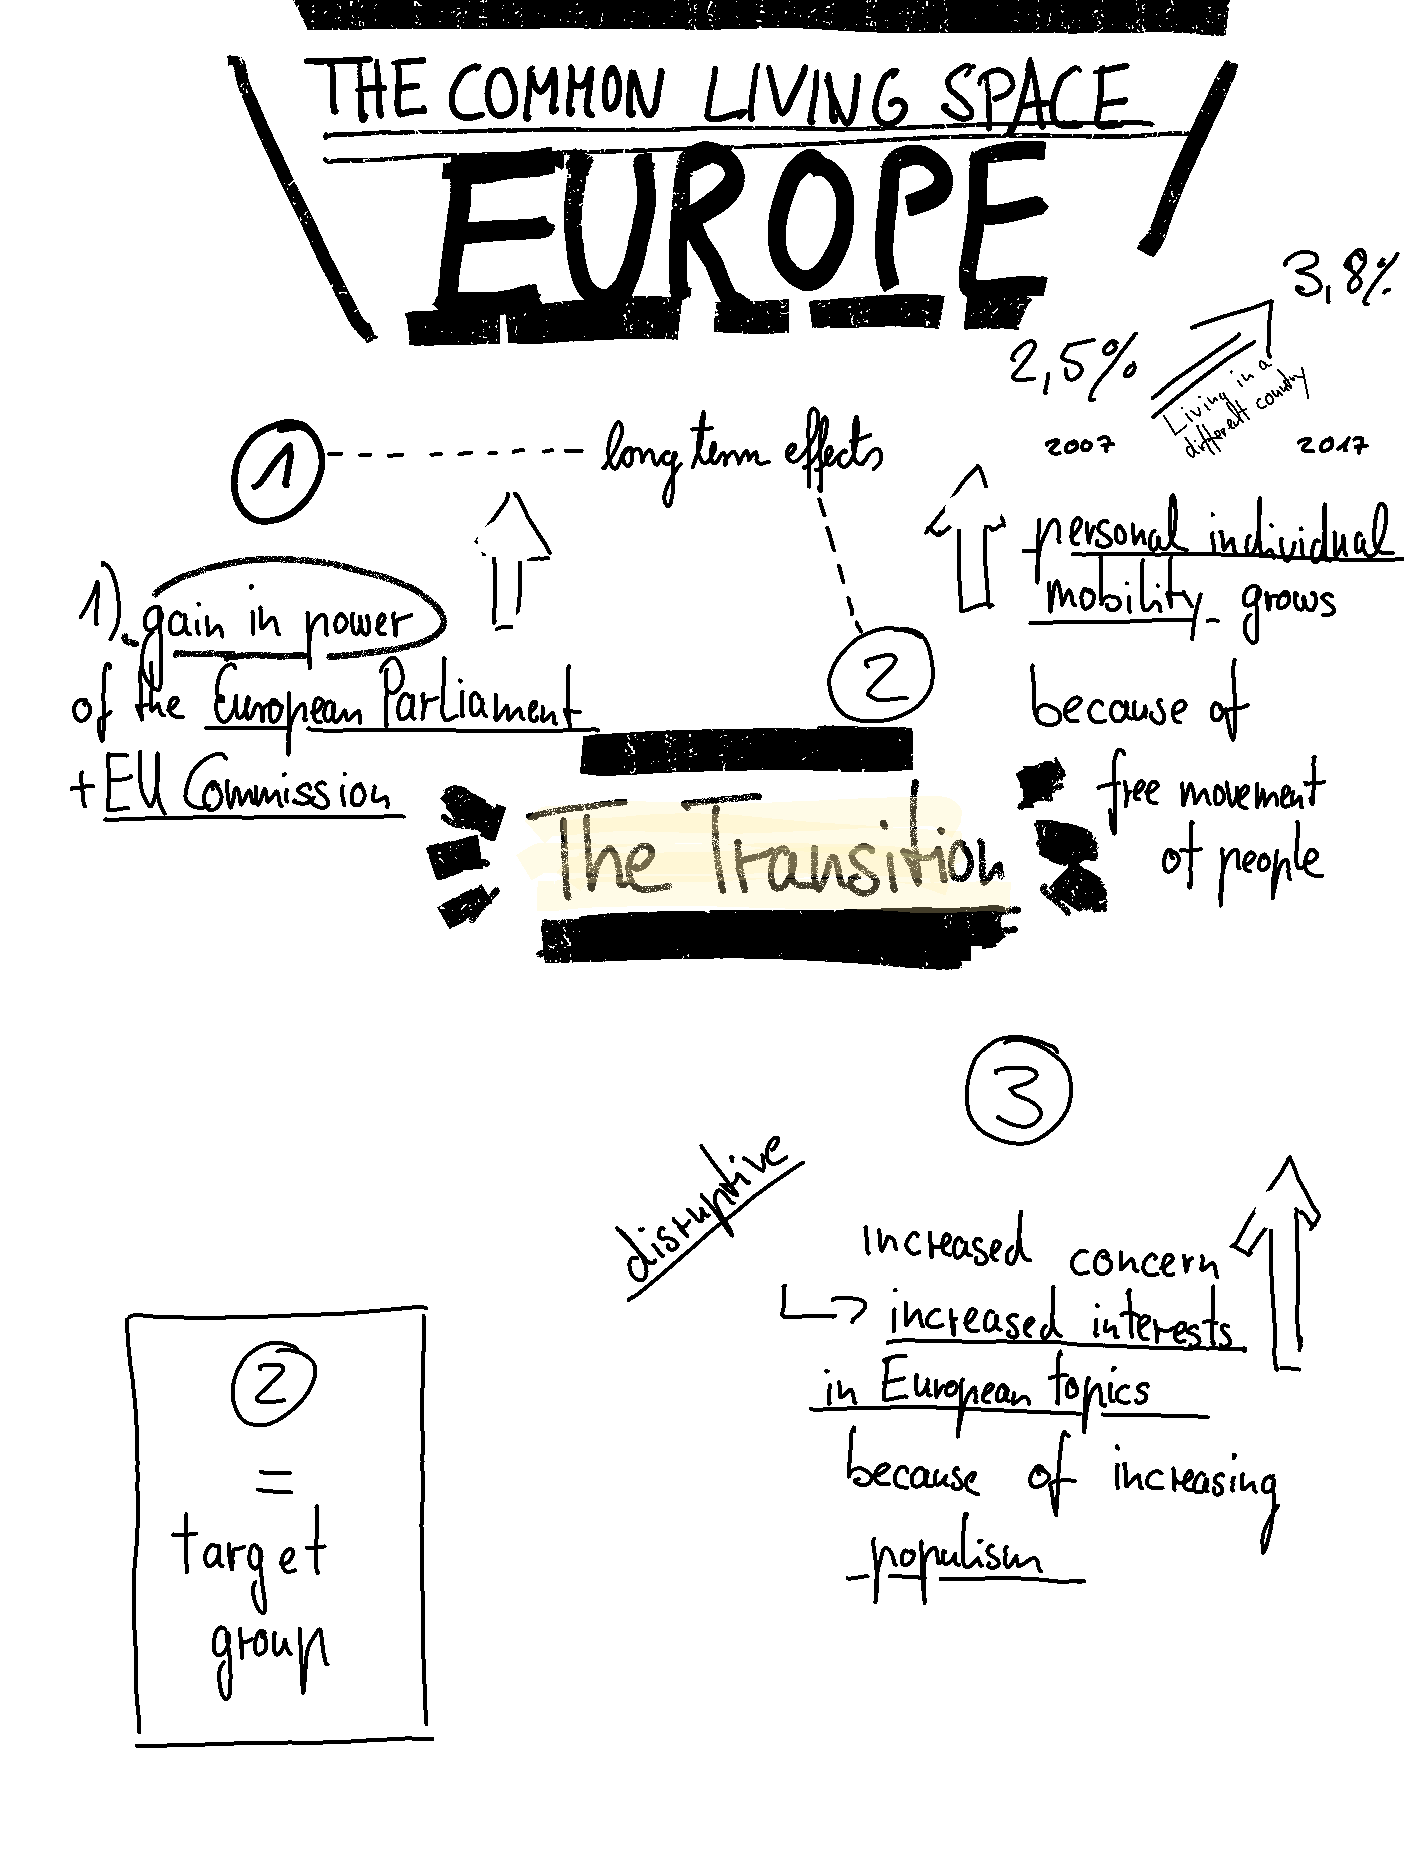 THE COMMON LIVING SPACE
EUROPE
3,8%
2,5%
Living in a
different country
2007
2017
1
long term effects
personal individual
mobility grows
because of
free movement
of people
1). gain in power
of the European Parliament
+ EU Commission
2
The Transition
3
disruptive
increased concern
increased interests
in European topics
because of increasing
populism
2
=
target
group